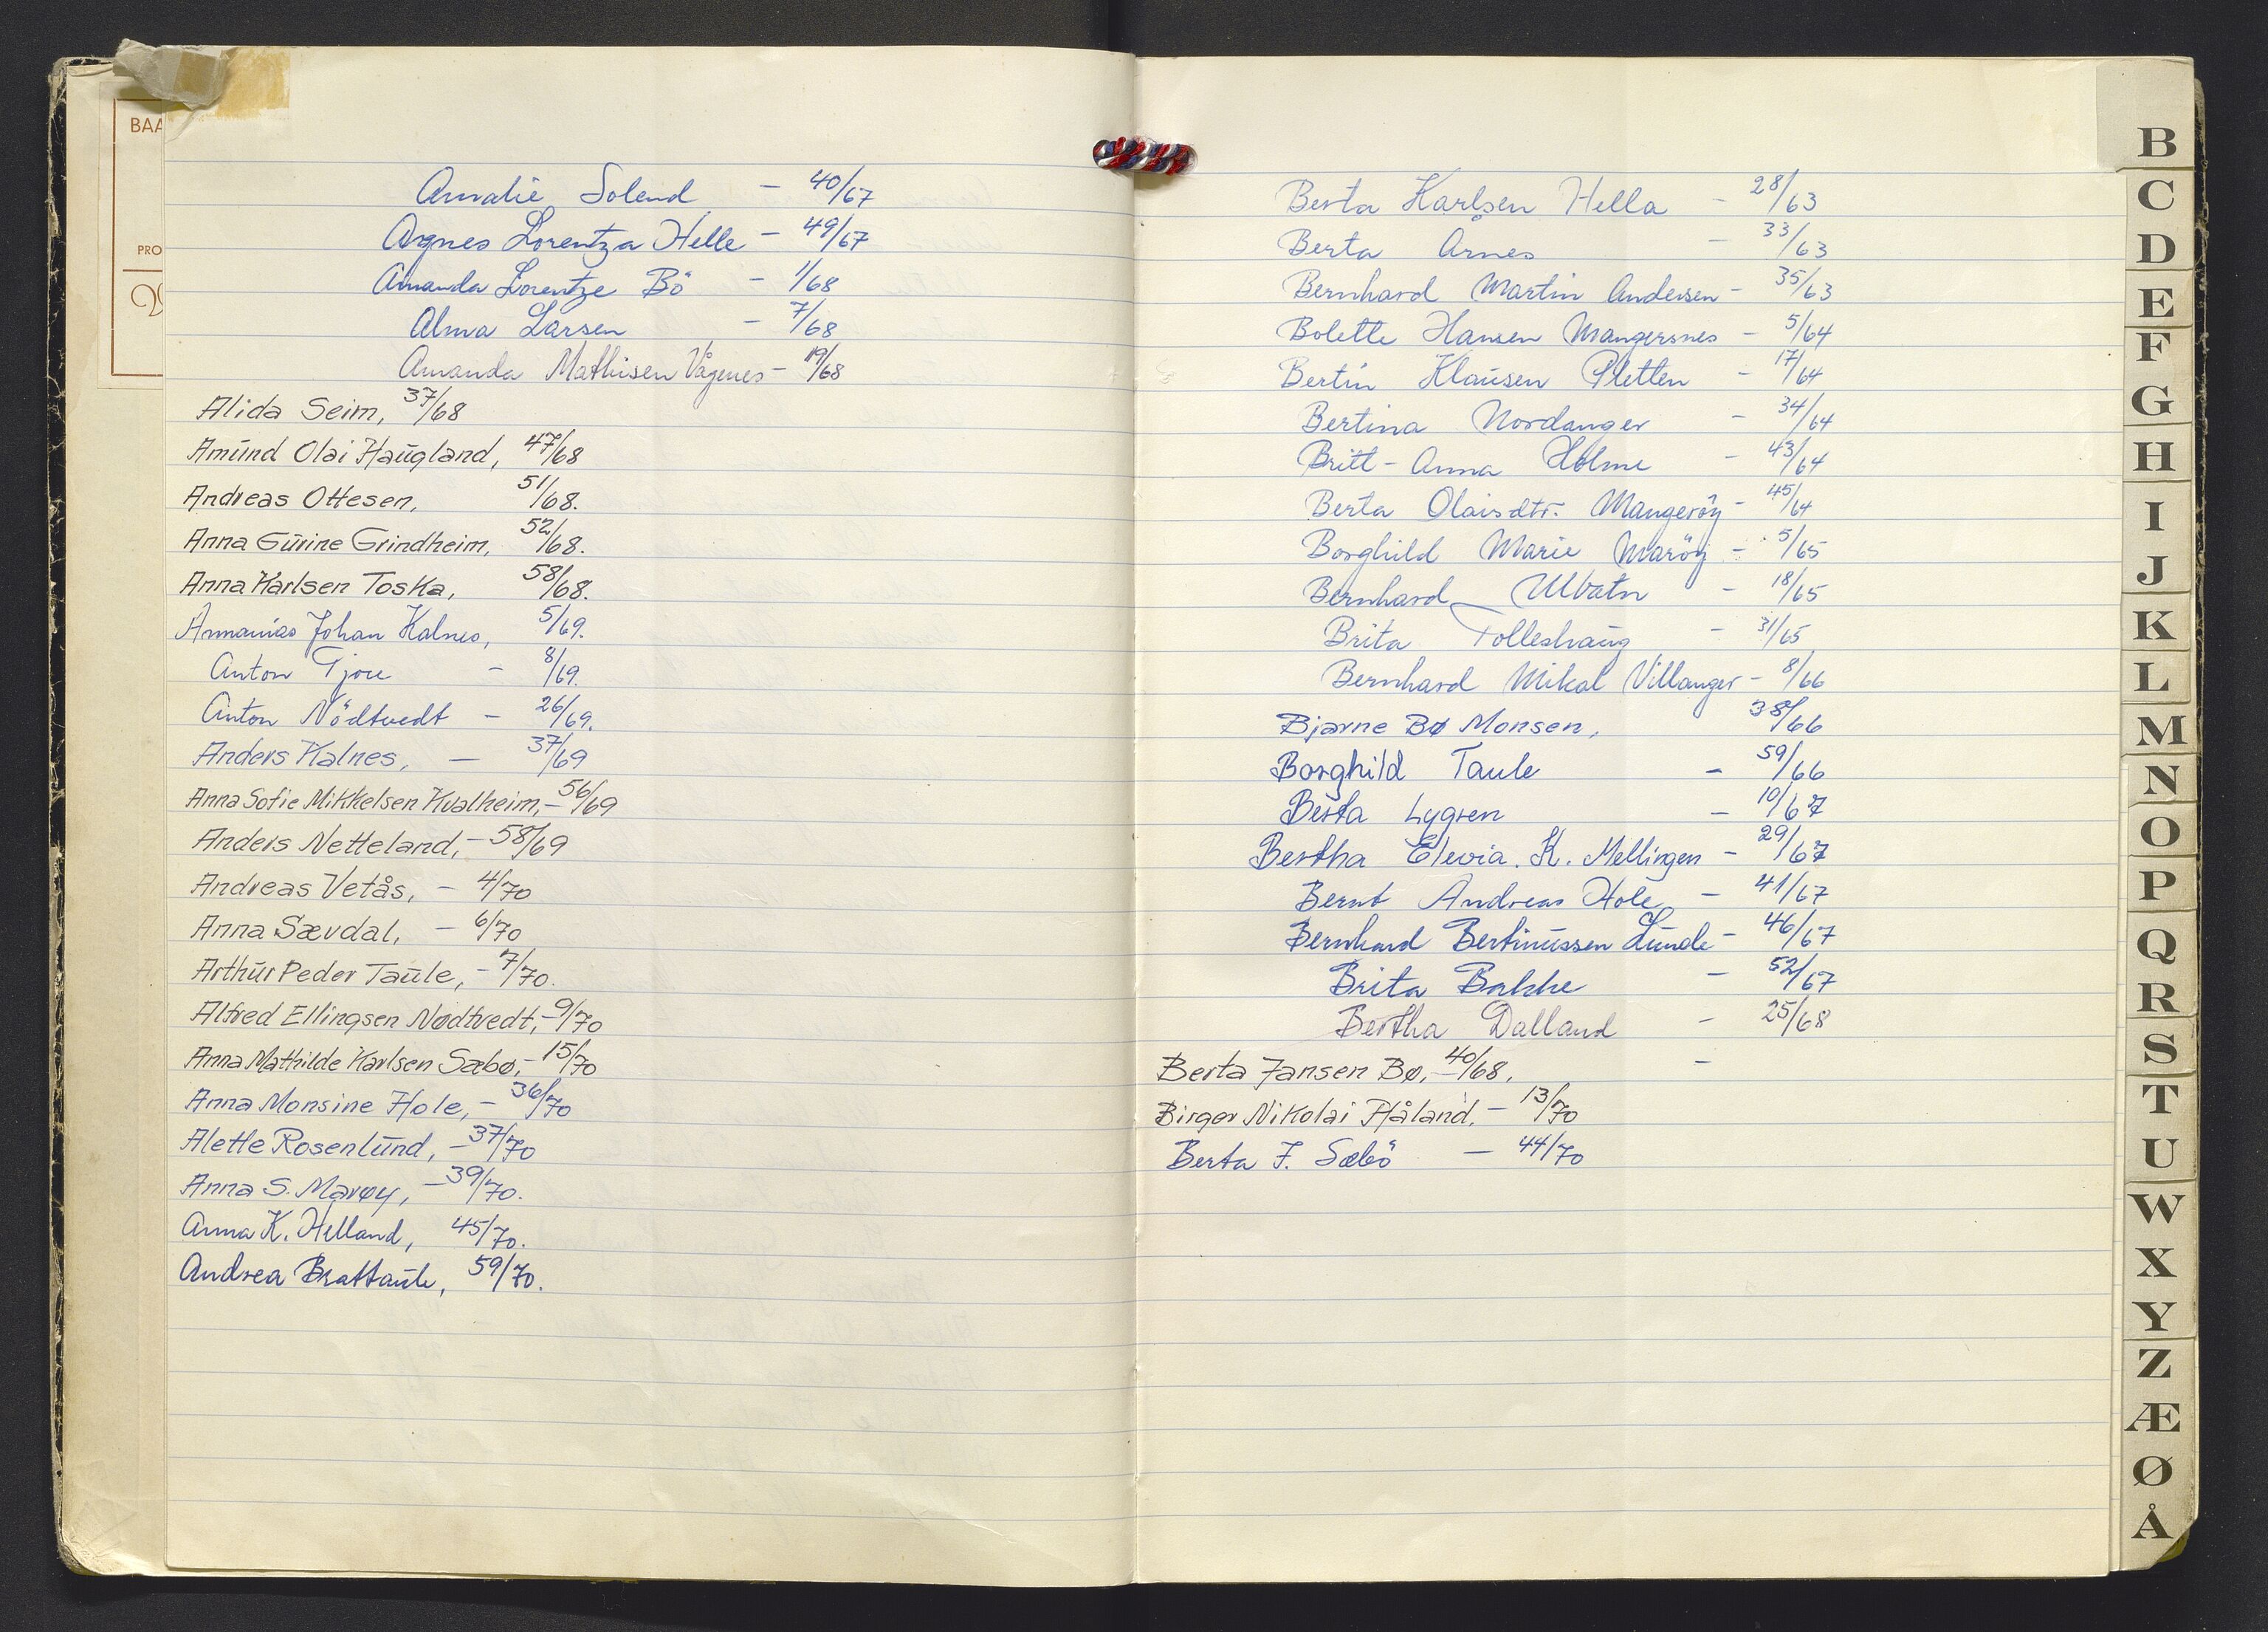 BAA
PRO
Amalie Solend - 40/67
Agnes Lorentza Helle - 49/67
Amanda Lorentze Bö - 1/68
Alma Larsen - 7/68
Amanda Mathisen Vågenes - 19/68
Alida Seim, 37/68
Amund Olai Haugland, 47/68
Andreas Ottesen, 51/68.
Anna Gurine Grindheim, 52/68.
Anna Karlsen Toska, 58/68.
Annanias Johan Kalnes, 5/69.
Anton Gjore - 8/69.
Anton Nödtvedt - 26/69.
Anders Kalnes, - 37/69
Anna Sofie Mikkelsen Kvalheim, - 56/69
Anders Netteland, - 58/69
Andreas Vetås, - 4/70
Anna Sævdal, - 6/70
Arthur Peder Taule, - 7/70.
Alfred Ellingsen Nødtvedt, - 9/70
Anna Mathilde Karlsen Sæbø, - 15/70
Anna Monsine Hole, - 36/70
Alette Rosenlund, - 37/70
Anna S. Marøy, - 39/70.
Anna K. Helland, 45/70.
Andrea Brattaule, 59/70.
Berta Karlsen Hella - 28/63
Berta Årnes - 33/63
Bernhard Martin Andersen - 35/63
Bolette Hansen Mangersnes - 5/64
Bertin Klausen Pletten - 17/64
Bertina Nordanger - 34/64
Britt-Anna Holme - 43/64
Berta Olaisdtr. Mangeröy - 45/64
Borghild Marie Maröy - 5/65
Bernhard Ulvatn - 18/65
Brita Tolleshaug - 31/65
Bernhard Mikal Villanger - 8/66
Bjarne Bø Monsen, 38/66
Borghild Taule - 59/66
Berta Lygren - 10/67
Bertha Elevia. K. Mellingen - 29/67
Bernt Andreas Hole - 41/67
Bernhard Bertinussen Lunde - 46/67
Brita Bakke - 52/67
Bertha Dalland - 25/68
Berta Jansen Bø, - 40/68, -
Birger Nikolai Håland, - 13/70
Berta J. Sæbö - 44/70
B
C
D
E
F
G
H
I
J
K
L
M
N
O
P
Q
R
S
T
U
W
X
Y
Z
Æ
Ø
Å